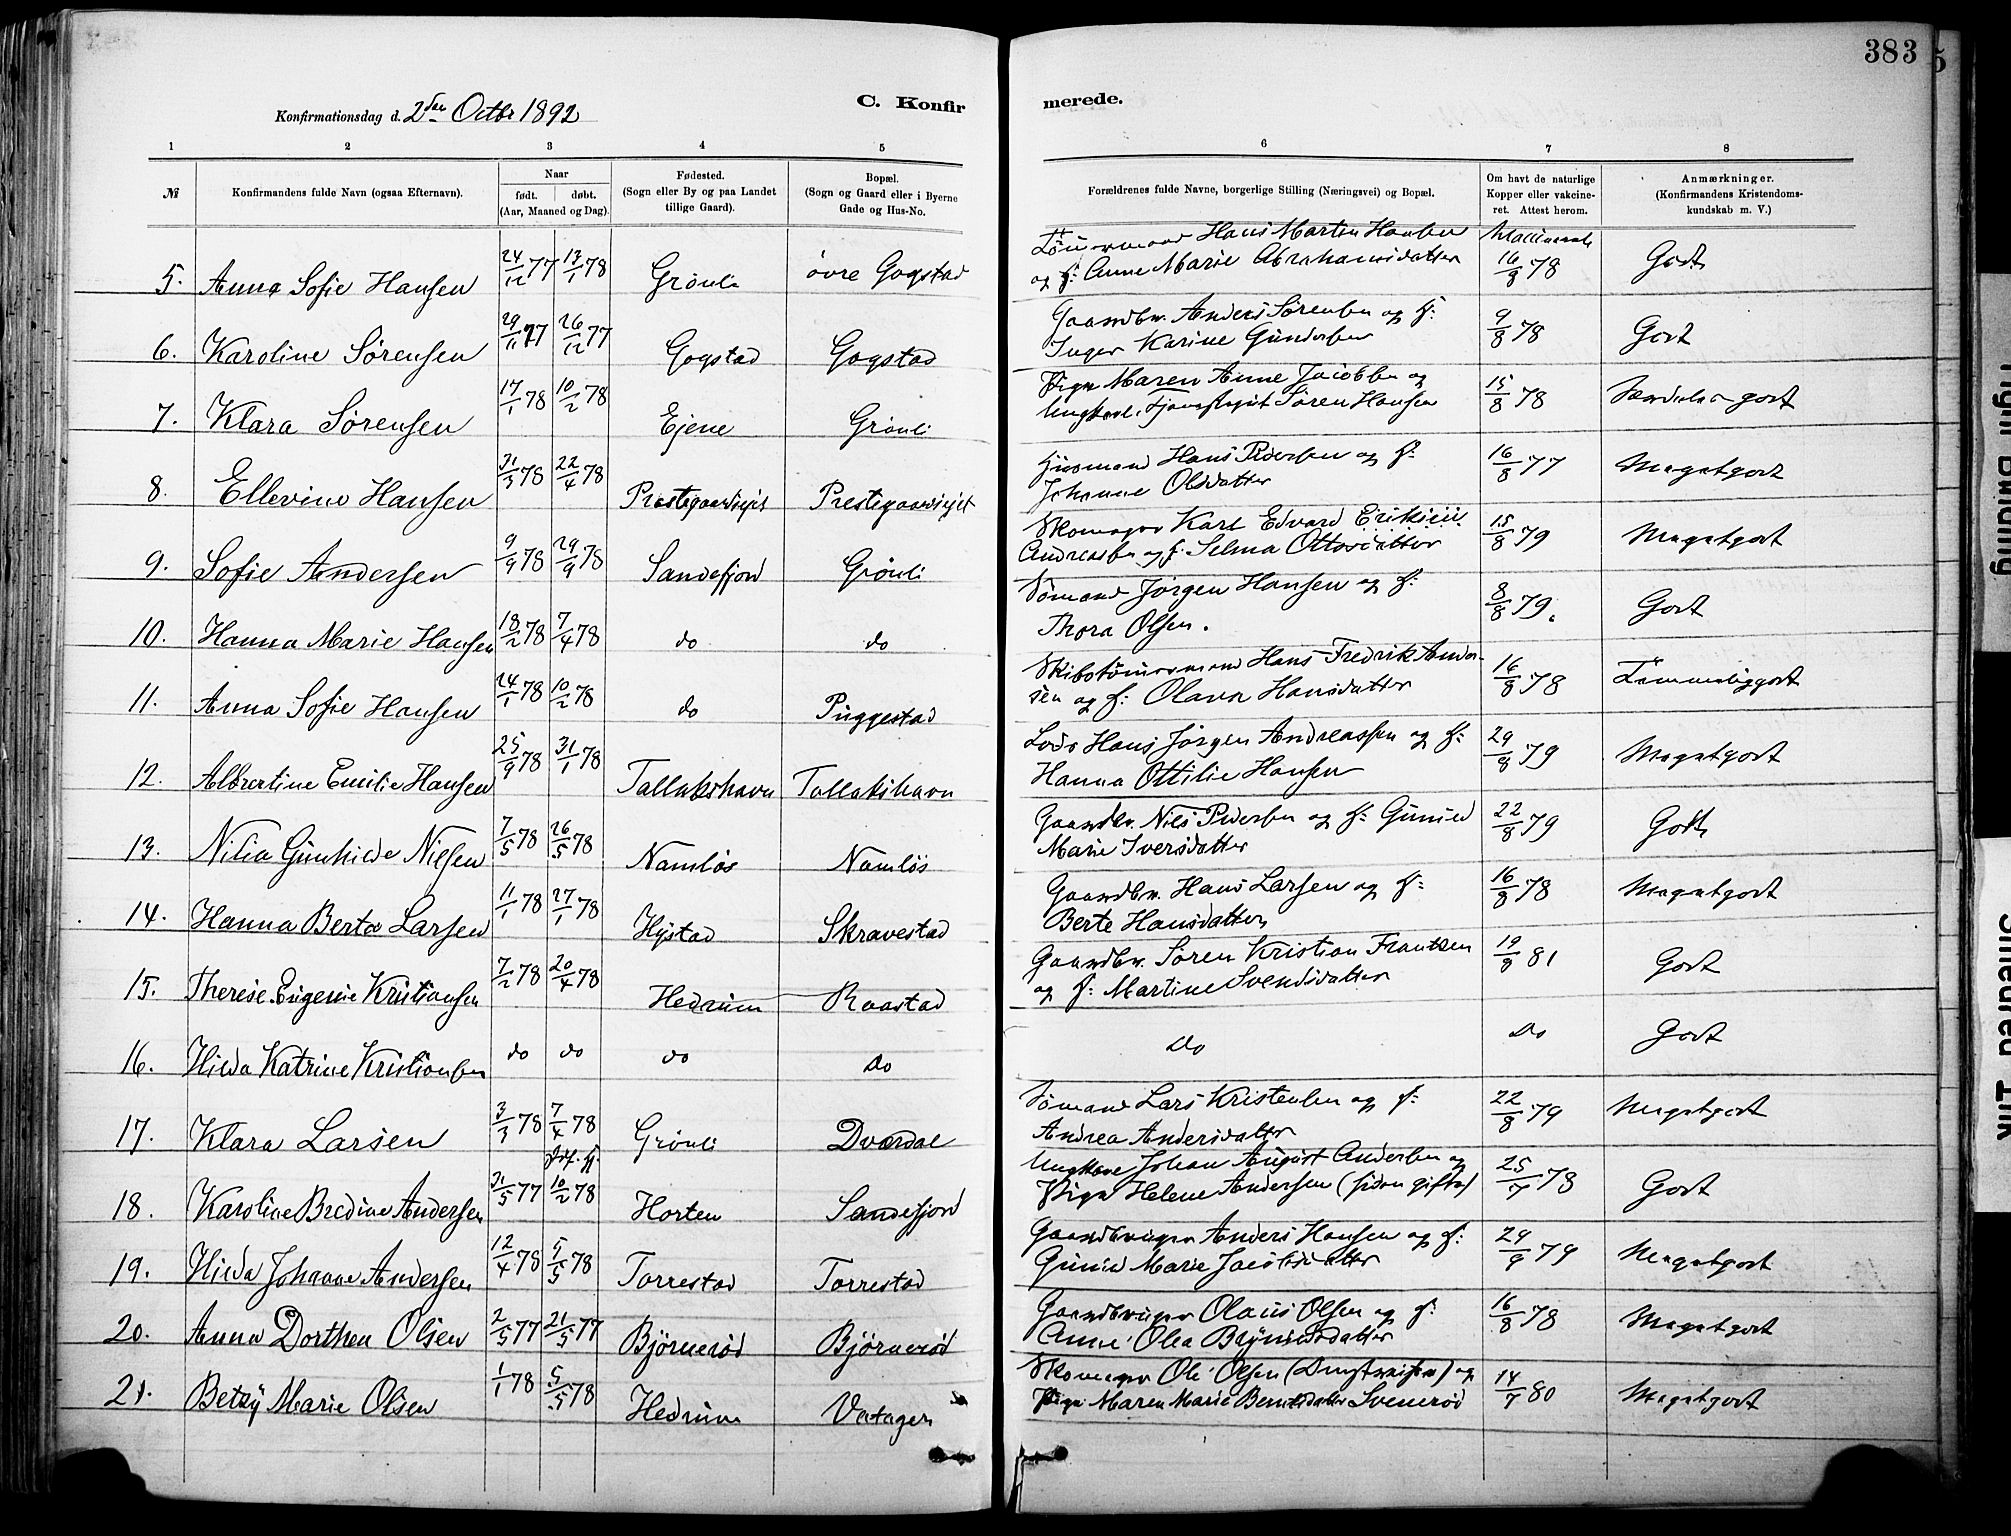 383
C. Konfir merede.
Konfirmationsdag d. 2den Octbr 1892
1 2 3 4 5 6 7 8
№ Konfirmandens fulde Navn (ogsaa Efternavn). Naar født. døbt. (Aar, Maaned og Dag). Fødested. (Sogn eller By og paa Landet tillige Gaard). Bopæl. (Sogn og Gaard eller i Byerne Gade og Hus-No. Forældrenes fulde Navne, borgerlige Stilling (Næringsvei) og Bopæl. Om havt de naturlige Kopper eller vakcineret. Attest herom. Anmærkninger. (Konfirmandens Kristendomskundskab m. V.)
5. Anna Sofie Hansen 24/12 77 13/1 78 Grönli övre Gogstad Hans Martin Hansen
og H: Anne Marie Abrahamsdatter 16/8 78 Godt
6. Karoline Sørensen 29/11 77 26/12 77 Gogstad Gogstad Gaardbr. Anders Sørensen og H:
Inger Karine Gundersen 9/8 78 Godt
7. Klara Sørensen 17/1 78 10/2 78 Ejene Grönli Pige Maren Anne Jacobsen og
Ungkarl Søren Hansen 15/8 78 godt
8. Ellevine Hansen 31/3 78 22/4 78 Prestegaardsejet Prestegaardsejet Husmand Hans Pedersen og H:
Johanne Olsdatter 16/8 77 Megetgodt
9. Sofie Andersen 9/9 78 29/9 78 Sandefjord Grönli Skomager Karl Edvard Eriksen
Andreassen og H. Selma Ottosdatter 15/8 79 Megetgodt
10. Hanna Marie Hansen 18/2 78 7/4 78 do do Sömand Jörgen Hansen og H:
Thora Olsen. 8/8 79. Godt
11. Anna Sofie Hansen 24/1 78 10/2 78 do Puggestad Skibstömmermand Hans Fredrik Ander-
sen og H: Olava Hansdatter 16/8 78 Temmeliggodt
12. Albertine Emilie Hansen 25/9 78 31/1 78 Tallakshavn Tallakshavn Lods Hans Jörgen Andreassen og H:
Hanna Ottilie Hansen 29/8 79 Megetgodt
13. Nilia Gunhilde Nilsen 7/5 78 26/5 78 Namlös Namlös Gaardbr. Nils Pedersen og H: Gunild
Marie Iversdatter 22/8 79 Godt
14. Hanna Berta Larsen 11/1 78 27/1 78 Hystad Skravestad Gaardbr. Hans Larsen og H:
Berte Hansdatter 16/8 78 Megetgodt
15. Therese Eugenie Kristiansen 7/2 78 20/4 78 Hedrum Raastad Gaardbr. Søren Kristian Frantzen
og H: Martine Svendsdatter 19/8 81 Godt
16. Hilda Katrine Kristiansen do do do do do do Godt
17. Klara Larsen 3/3 78 7/4 78 Grönli Dværdal Sömand Lars Kristensen og H:
Andrea Andersdatter 22/8 79 Megetgodt
18. Karoline Bredine Andersen 31/5 77 10/2 78 Horten Sandefjord Ungkarl Johan August Andersen og
Pige Helene Andersen (siden gifte) 25/7 78 Godt
19. Hilda Johanne Andersen 12/4 78 5/5 78 Torrestad Torrestad Gaardbruger Anders Hansen og H:
Gunild Marie Jacobsdatter 29/9 79 Megetgodt
20. Anna Dorthea Olsen 2/5 77 21/5 77 Björnerød Björnerød Gaardbruger Olaus Olsen og H:
Anne Olea Brynildsdatter 16/8 78 Megetgodt
21. Betsy Marie Olsen 1/1 78 5/5 78 Hedrum Vatager Skomager Ole Olsen og
Pige Maren Marie Berntsdatter Svenerød 14/7 80 Megetgodt